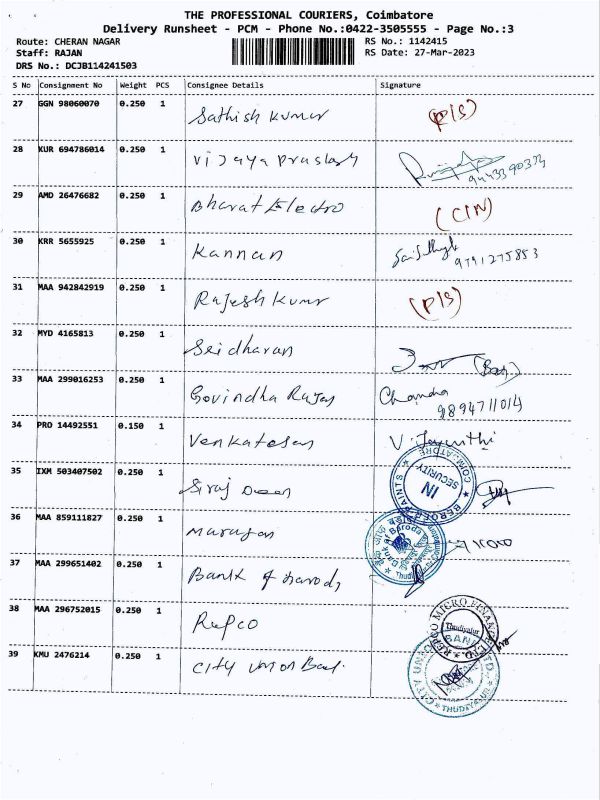 THE PROFESSIONAL COURIERS, Coimbatore
Delivery Runsheet - PCM - Phone No.:0422-3505555 - Page No.:3
Route: CHERAN NAGAR RS No.: 1142415
Staff: RAJAN RS Date: 27-Mar-2023
DRS No.: DCJB114241503
S No Consignment No Weight PCS Consignee Details Signature
27 GGN 98060070 0.250 1 Sathish Kumar (P/S)
28 KUR 694786014 0.250 1 Vijaya Praslash 9443390373
29 AMD 26476682 0.250 1 Bharat Electro (CIN)
30 KRR 5655925 0.250 1 Kannan 9791275853
31 MAA 942842919 0.250 1 Rajesh Kumr (P/S)
32 MYD 4165813 0.250 1 Seidharan
33 MAA 299016253 0.250 1 Govindha Rajan Chandra
9894711014
34 PRO 14492551 0.150 1 Venkatesan V. Jayanthi
35 IXM 503407502 0.250 1 Siraj Deen BERGER PAINTS COIMBATORE SECURITY IN
36 MAA 859111827 0.250 1 Murugan Bank of Baroda
37 MAA 299651402 0.250 1 Bank of Barods
38 MAA 296752015 0.250 1 Repco REPCO MICRO FINANCE LTD. Thudiyalur
39 KMU 2476214 0.250 1 City Union Bank. CITY UNION BANK LTD. THUDIYALUR